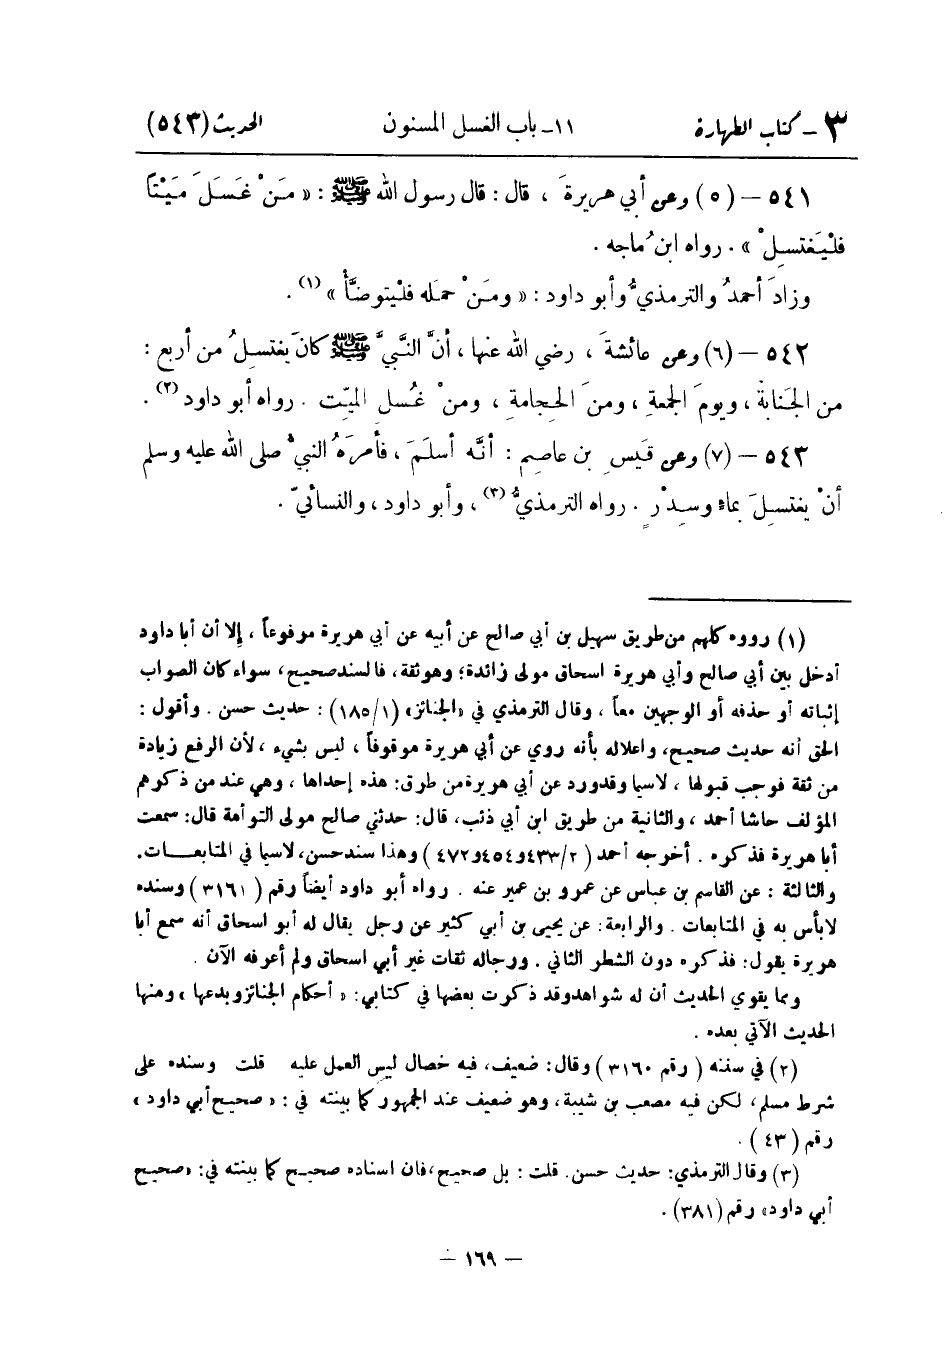 ٣ - كتاب الطهارة ١١ - باب الغسل المسنون الحديث (٥٤٣)
٥٤١ - (٥) وعن أبي هريرةَ ، قال : قال رسول الله ﷺ : « مَنْ غَسَلَ مَيْتاً
فليَغتسِلْ » . رواه ابنُ ماجه .
وزادَ أحمدُ والترمذيُّ وأبو داود : « ومَنْ حمَله فليتوضَّأْ » (١) .
٥٤٢ - (٦) وعن عائشةَ ، رضي الله عنها ، أنَّ النَّبيَّ ﷺ كانَ يغتسِلُ من أربع :
من الجَنابةِ ، ويومَ الجمعةِ ، ومنَ الحِجامةِ ، ومنْ غُسلِ الميِّت . رواه أبو داود (٢) .
٥٤٣ - (٧) وعن قيَسِ بن عاصِم : أنَّه أسلَمَ ، فأمرَهُ النبيُّ صلى الله عليه وسلم
أنْ يغتسِلَ بماءٍ وسِدْرٍ . رواه الترمذيُّ (٣) ، وأبو داود ، والنسائيّ .
(١) رووه كلهم من طريق سهيل بن أبي صالح عن أبيه عن أبي هريرة مرفوعاً ، إلا أن أبا داود
أدخل بين أبي صالح وأبي هريرة اسحاق مولى زائدة؛ وهو ثقة، فالسند صحيح، سواء كان الصواب
إثباته أو حذفه أو الوجهين معاً ، وقال الترمذي في «الجنائز» (١/١٨٥) : حديث حسن . وأقول :
الحق أنه حديث صحيح، واعلاله بأنه روي عن أبي هريرة موقوفاً ، ليس بشيء ، لأن الرفع زيادة
من ثقة فوجب قبولها ، لاسيما وقد ورد عن أبي هريرة من طرق: هذه إحداها ، وهي عند من ذكرهم
المؤلف حاشا أحمد ، والثانية من طريق ابن أبي ذئب، قال: حدثني صالح مولى التوأمة قال: سمعت
أبا هريرة فذكره . أخرجه أحمد (٢/٤٣٣و٤٥٤و٤٧٢) وهذا سند حسن، لاسيما في المتابعات.
والثالثة : عن القاسم بن عباس عن عمرو بن عمير عنه . رواه أبو داود أيضاً رقم (٣١٦١) وسنده
لابأس به في المتابعات . والرابعة: عن يحيى بن أبي كثير عن رجل يقال له أبو اسحاق أنه سمع أبا
هريرة يقول: فذكره دون الشطر الثاني . ورجاله ثقات غير أبي اسحاق ولم أعرفه الآن .
ومما يقوي الحديث أن له شواهد وقد ذكرت بعضها في كتابي: « أحكام الجنائز وبدعها » ومنها
الحديث الآتي بعده .
(٢) في سننه (رقم ٣١٦٠) وقال: ضعيف، فيه خصال ليس العمل عليه قلت وسنده على
شرط مسلم، لكن فيه مصعب بن شيبة، وهو ضعيف عند الجمهور كما بينته في : « صحيح أبي داود »
رقم (٤٣) .
(٣) وقال الترمذي: حديث حسن. قلت : بل صحيح، فان اسناده صحيح كما بينته في: «صحيح
أبي داود» رقم (٣٨١) .
- ١٦٩ -